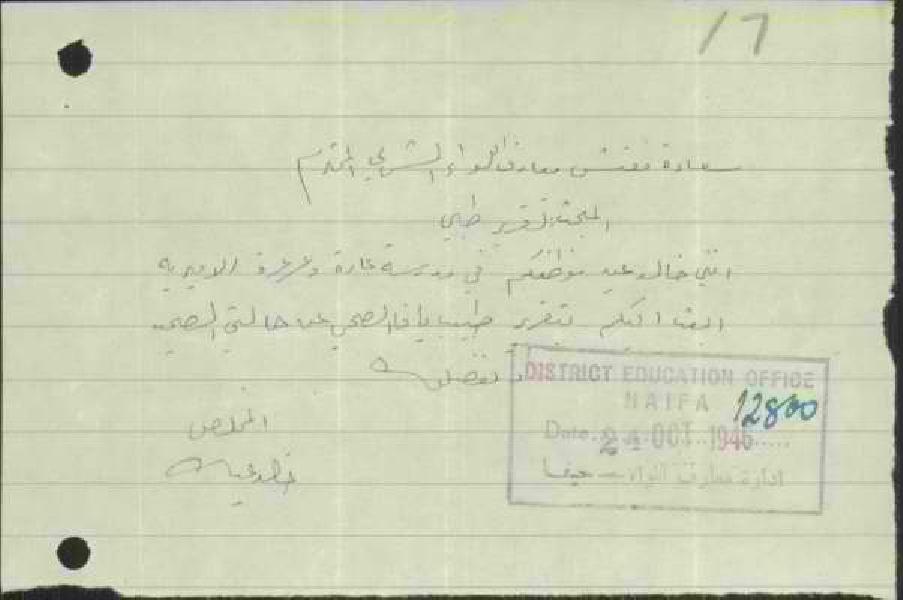 17
سعادة مفتش معارف اللواء الشمالي المحترم
المبحث تقرير طبي
انني خالد عيد موظفكم في مدرسة عارة وعرعرة الاميرية
ابعث اليكم بتقرير طبيب يافا الصحي عن حالتي الصحية
وتفضلوا
المخلص
خالد عيد
DISTRICT EDUCATION OFFICE
HAIFA
12800
Date 24 OCT 1946
ادارة معارف اللواء - حيفا